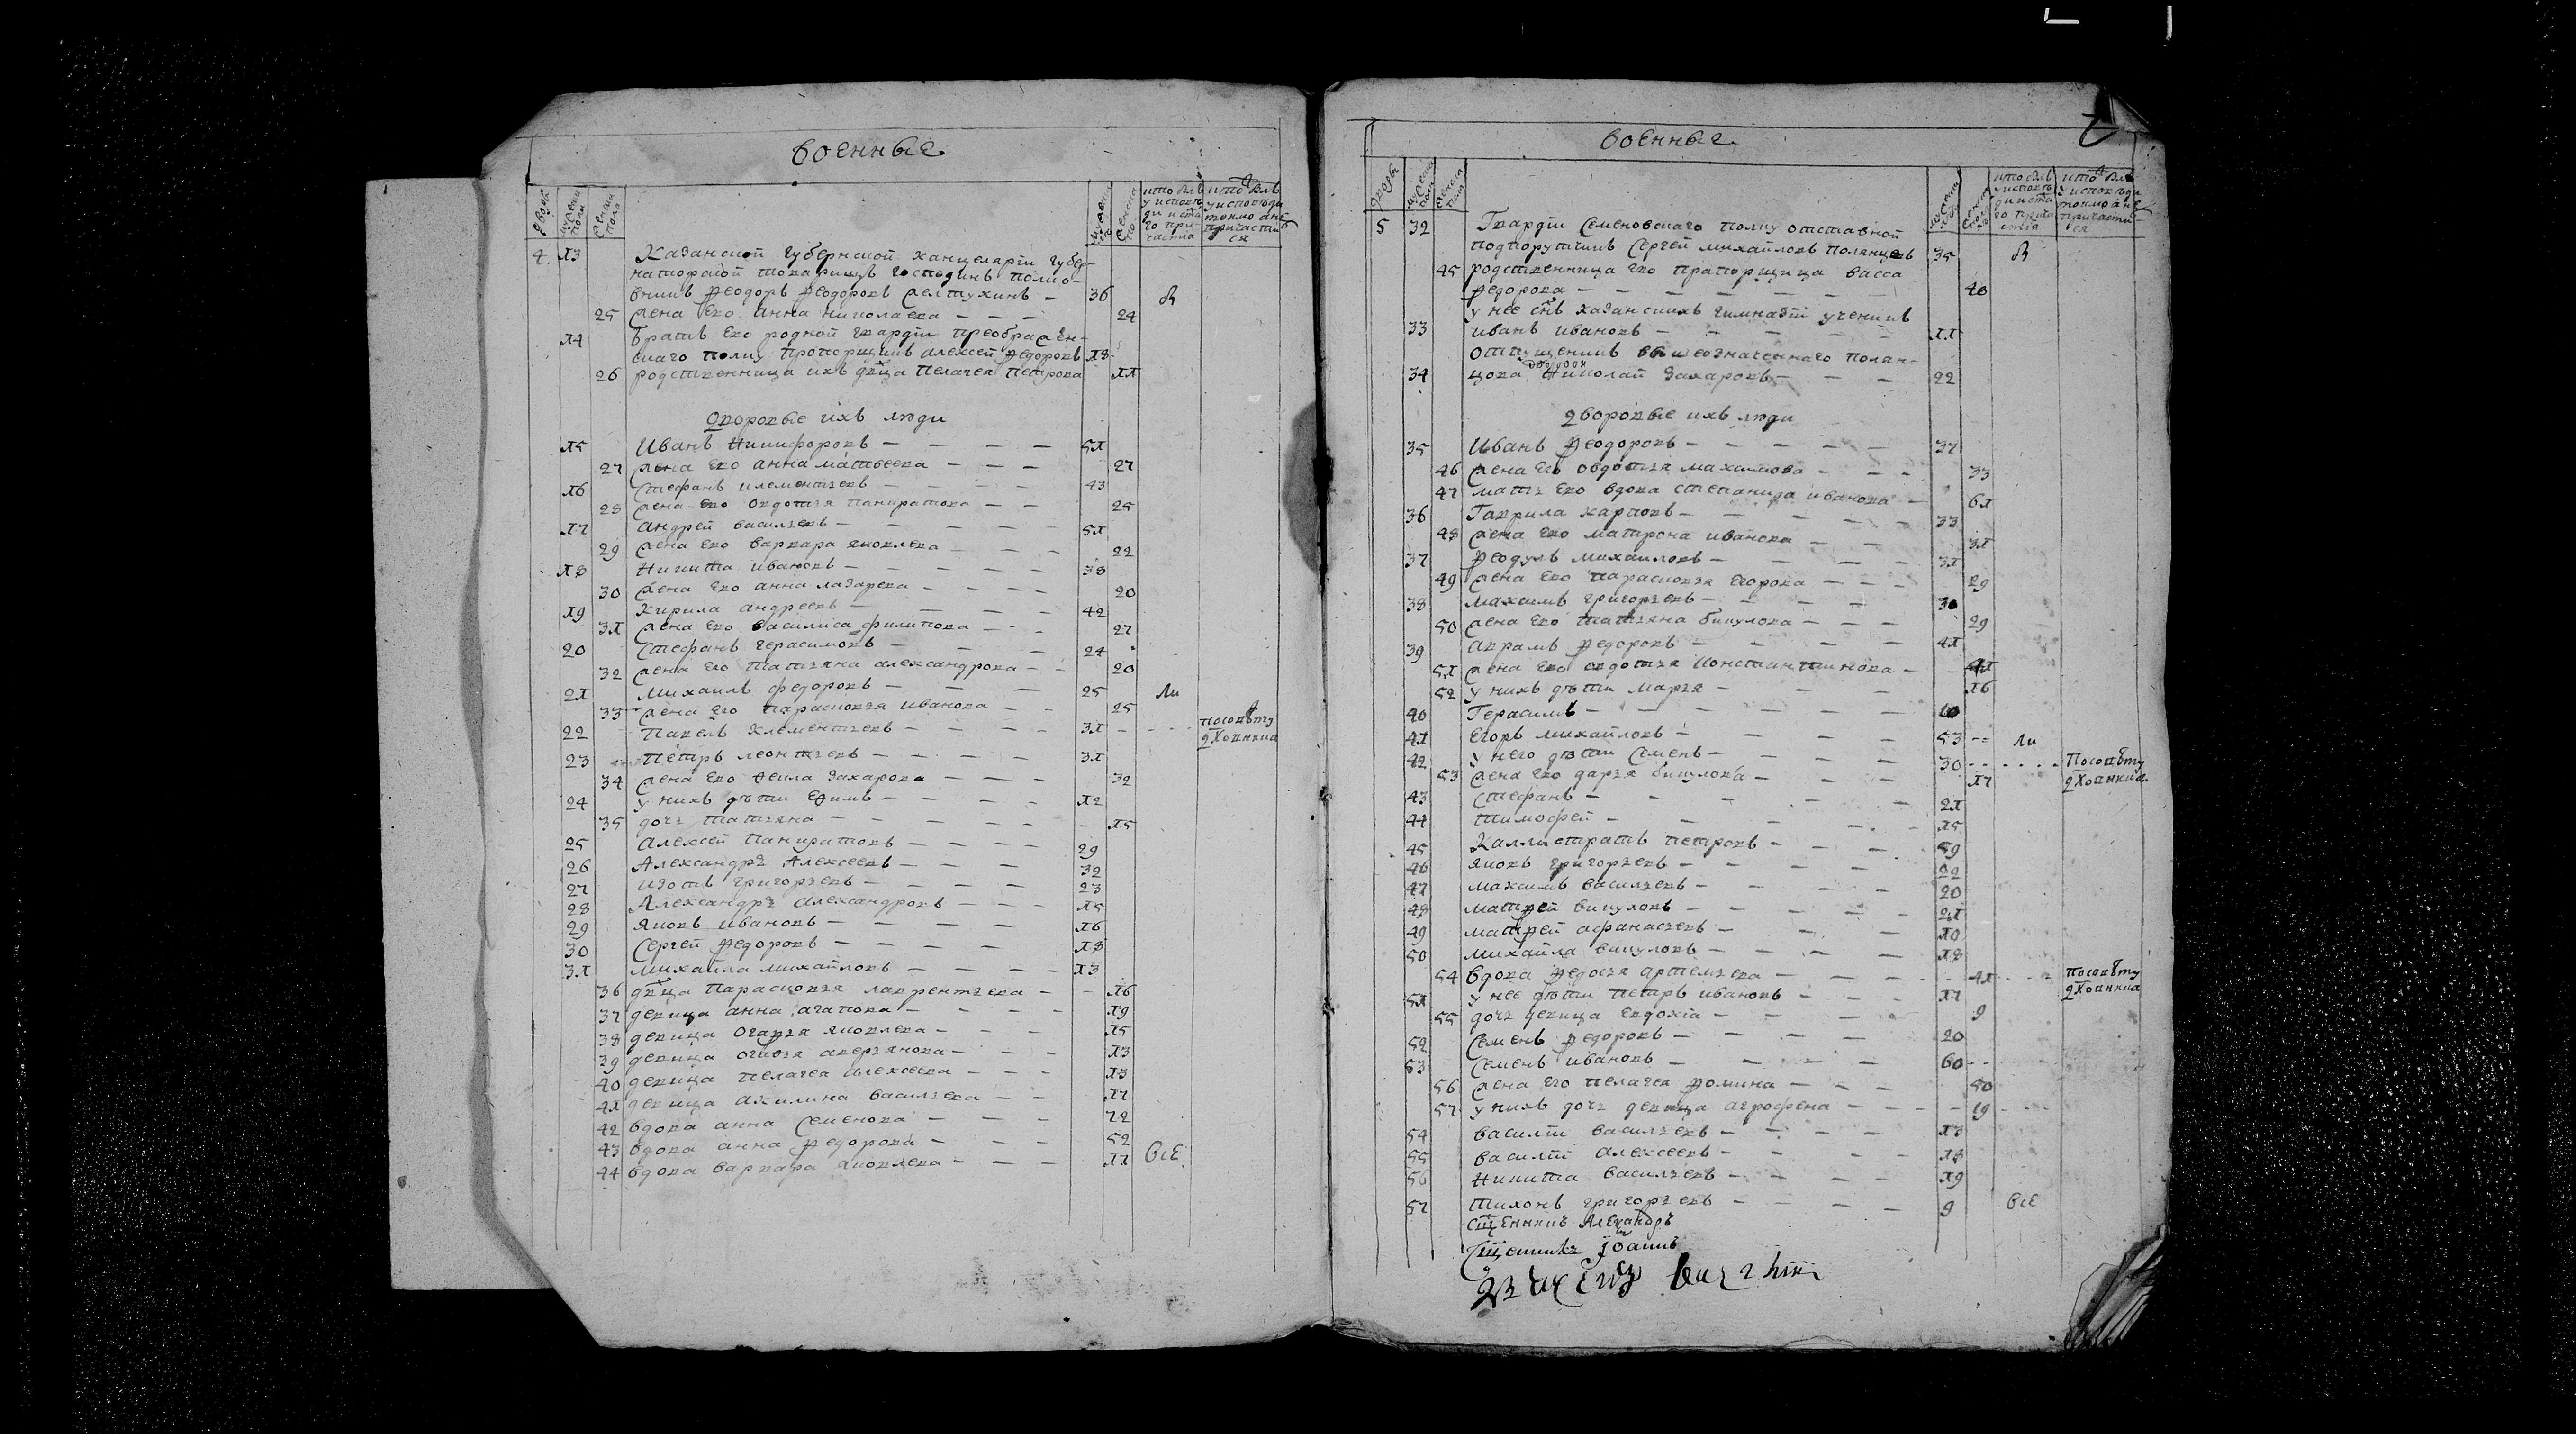 военные
дворы
мужеска пола
женска пола
4. 13 Казанской губернской канцелярiи губер-
наторской товарищъ господинъ полко-
вникъ Ѳеодоръ Ѳеодоровъ желтухинъ — 36
25 жена ево анна николаева — — — 24
14 братъ ево родной гвардiи преображен-
скаго полку прапорщикъ алексей Ѳедоровъ 18
26 родственница ихъ двца пелагея петрова 11
дворовые ихъ люди
15 Иванъ Никифоровъ — — — — 51
27 жена ево анна матвеева — — — 27
16 стефанъ клементьевъ — — — 43
28 жена ево овдотья панкратова — — 25
17 андрей васильевъ — — — — 51
29 жена ево варвара яковлева — — — 22
18 Никита ивановъ — — — — 38
30 жена ево анна лазарева — — — — 20
19 кирила андреевъ — — — — 42
31 жена ево василиса филипова — — 27
20 стефанъ герасимовъ — — — 24
32 жена его татьяна александрова — — 20
21 михаилъ федоровъ — — — 25
33 жена его парасковья иванова — — 25
22 павелъ клементьевъ — — — — 31 посовѣту
духовника
23 петръ леонтьевъ — — — — 31
34 жена ево Ѳекла захарова — — — 32
24 у нихъ дѣти Еѳимъ — — — — 12
35 дочь татьяна — — — — — 15
25 алексей панкратовъ — — — — 29
26 Александръ Алексеевъ — — — 32
27 изотъ григорьевъ — — — — 23
28 Александръ александровъ — — — 15
29 яковъ ивановъ — — — — 16
30 Сергей Ѳедоровъ — — — — 18
31 михайла михайловъ — — — — 13
36 двца парасковья лаврентьева — — 16
37 девица анна агапова — — — — 19
38 девица Огафья яковлева — — — 15
39 девица аверьянова — — — 13
40 девица пелагея алексеева — — — 13
41 девица акилина васильева — — 17
42 вдова анна семенова — — — 72
43 вдова анна Ѳедорова — — — 52
44 вдова варвара яковлева — — — 11 всЕ
военные
дворы
мужеска пола
женска пола
5 32 Гвардiи Семеновскаго полку отставной
подпорутчикъ Сергей михайловъ полянцовъ 35
45 родственница ево прапорщица васса
Ѳедорова — — — — — — 40
у нее снъ казанскихъ гимназiй ученикъ
33 иванъ ивановъ — — — — — 11
отпущенникъ вышеозначеннаго полян-
34 цова Николай захаровъ — — — 22
дворовые ихъ люди
35 Иванъ Ѳеодоровъ — — — — — 27
46 жена его овдотья максимова — — — 33
47 мать ево вдова степанида иванова — 61
36 Гаврила карповъ — — — — — 33
48 жена ево матрона иванова — — 31
37 Ѳеодулъ михаиловъ — — — — 31
49 жена ево парасковья егорова — — — 29
38 максимъ григорьевъ — — — — 30
50 жена ево татьяна викулова — — — 29
39 аврамъ Ѳедоровъ — — — — 41
51 жена ево овдотья константинова — 41
52 у нихъ дѣти марья — — — 16
40 Герасимъ — — — — — 10
41 Егоръ михайловъ — — — — 53
42 у него дѣти семенъ — — — — 30 Посовѣту
53 жена ево дарья викулова — — — 17 духовника
43 стефанъ — — — — — 21
44 тимофей — — — — — 15
45 Каллистратъ петровъ — — — — 59
46 яковъ григорьевъ — — — — 22
47 максимъ васильевъ — — — — 20
48 матѲей викуловъ — — — — 21
49 матѲей афанасьевъ — — — 10
50 михайла викуловъ — — — — 18
54 вдова Ѳедосья артемьева — — — 41 посовѣту
духовника
51 у нее дѣти петръ ивановъ — — — 17
55 дочь девица евдокiа — — — — 9
52 Семенъ Ѳедоровъ — — — — 20
53 Семенъ ивановъ — — — — 60
56 жена его пелагея Ѳомина — — — 50
57 у нихъ дочь девица агрофена — — — 19
54 василiй васильевъ — — — — 18
55 василiй алексеевъ — — — — 18
56 Никита васильевъ — — — — 19
57 тихонъ григорьевъ — — — — 9 всЕ
Сщенникъ Александръ
Сщенникъ Iоаннъ